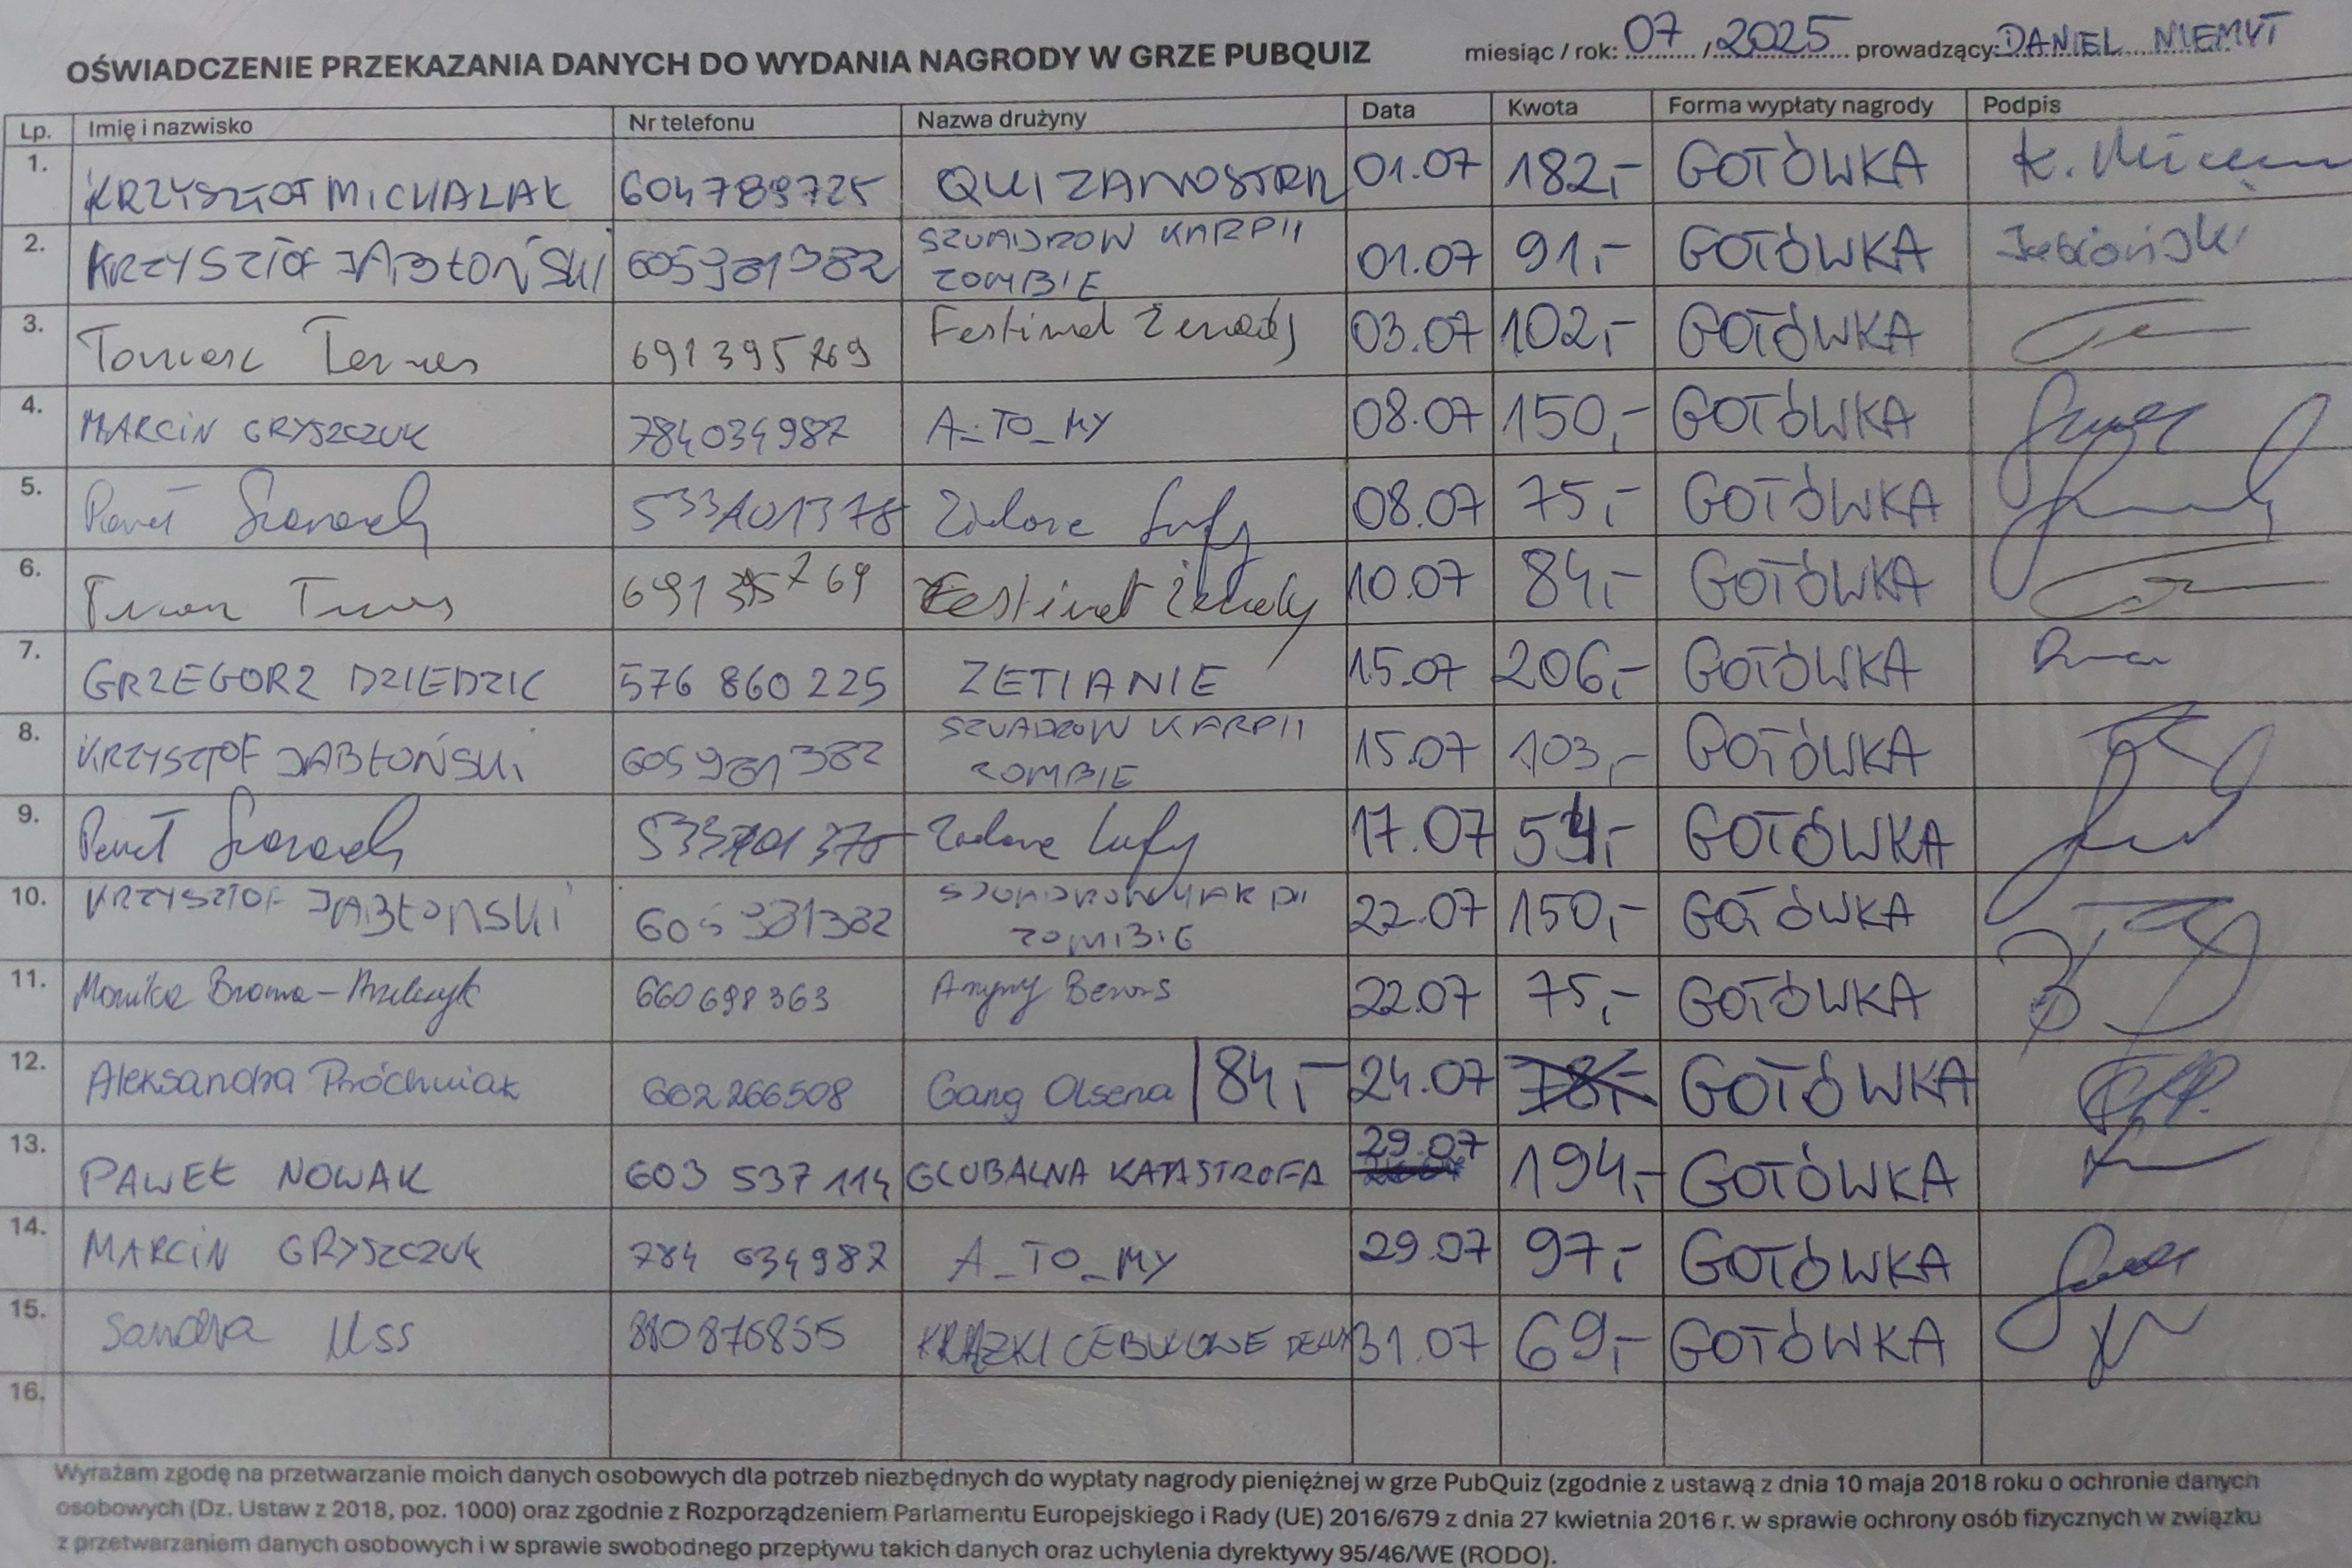 OŚWIADCZENIE PRZEKAZANIA DANYCH DO WYDANIA NAGRODY W GRZE PUBQUIZ miesiąc / rok: 07 / 2025 prowadzący: DANIEL NIEMYT
Lp. Imię i nazwisko Nr telefonu Nazwa drużyny Data Kwota Forma wypłaty nagrody Podpis
1. KRZYSZTOF MICHALAK 604789725 QUIZANOSTRA 01.07 182,- GOTÓWKA
2. KRZYSZTOF JABŁOŃSKI 605981382 SZWADRON KARPII ZOMBIE 01.07 91,- GOTÓWKA Jabłoński
3. Tomasz 691395769 Festiwal Żenady 03.07 102,- GOTÓWKA
4. MARCIN GRYSZCZUK 784034987 A_TO_MY 08.07 150,- GOTÓWKA
5. Paweł 533101378 08.07 75,- GOTÓWKA
6. 691395769 Festiwal Żenady 10.07 84,- GOTÓWKA
7. GRZEGORZ DZIEDZIC 576 860 225 ZETIANIE 15.07 206,- GOTÓWKA
8. KRZYSZTOF JABŁOŃSKI 605981382 SZWADRON KARPII ZOMBIE 15.07 103,- GOTÓWKA
9. Paweł 17.07 GOTÓWKA
10. KRZYSZTOF JABŁOŃSKI 605981382 SZWADRON KARPII ZOMBIE 22.07 150,- GOTÓWKA
11. Monika 660698363 22.07 75,- GOTÓWKA
12. Aleksandra Próchniak 602266508 Gang Olsena 84,- 24.07 78,- GOTÓWKA
13. PAWEŁ NOWAK 603 537 114 GLOBALNA KATASTROFA 29.07 194,- GOTÓWKA
14. MARCIN GRYSZCZUK 784 034987 A_TO_MY 29.07 97,- GOTÓWKA
15. Sandra 880876855 KRĄŻKI CEBULOWE DELUX 31.07 69,- GOTÓWKA
16.
Wyrażam zgodę na przetwarzanie moich danych osobowych dla potrzeb niezbędnych do wypłaty nagrody pieniężnej w grze PubQuiz (zgodnie z ustawą z dnia 10 maja 2018 roku o ochronie danych
osobowych (Dz. Ustaw z 2018, poz. 1000) oraz zgodnie z Rozporządzeniem Parlamentu Europejskiego i Rady (UE) 2016/679 z dnia 27 kwietnia 2016 r. w sprawie ochrony osób fizycznych w związku
z przetwarzaniem danych osobowych i w sprawie swobodnego przepływu takich danych oraz uchylenia dyrektywy 95/46/WE (RODO).